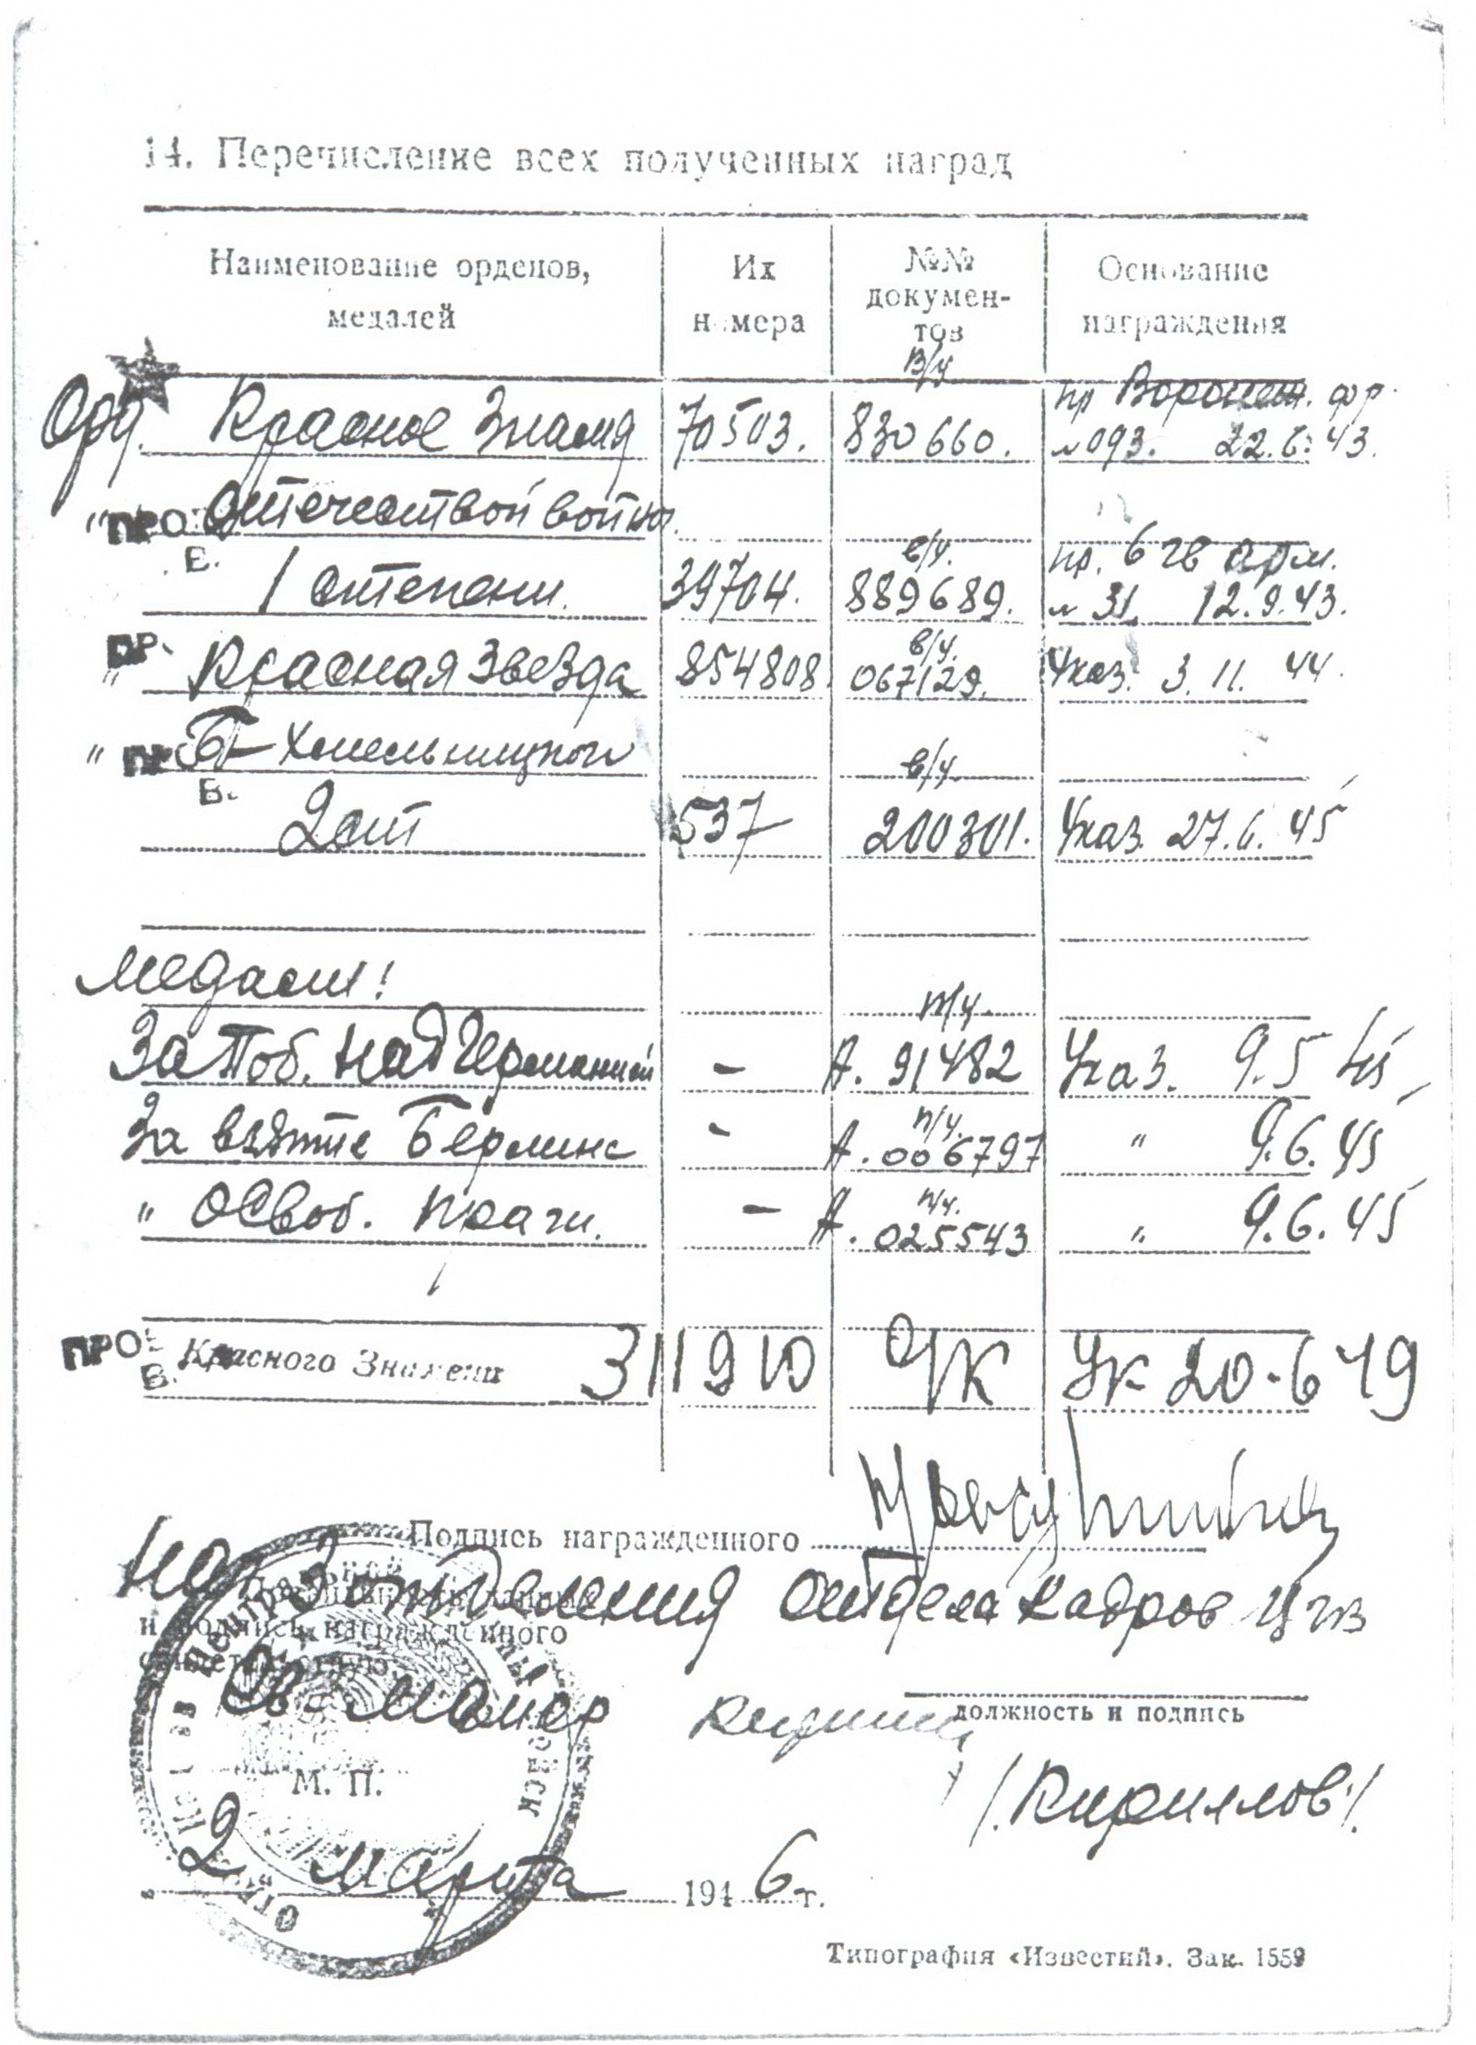 14. Перечисление всех полученных наград
Наименование орденов, медалей
Их номера
№№ докумен-тов
Основание награждения
в/у пр Воронеж. фр.
Орд. Красное Знамя 70503. 830660. №093. 22.6.43.
" ПРОВ. Отечествой войны
в/у. пр. 6 гв арм.
1 степени. 39704. 889689. № 31 12.9.43.
в/у.
ПР. " Красная Звезда 854808. 067129. Указ. 3.11.44.
" ПР В. Б-Хмельницкого в/у.
2 ст 537 200301. Указ. 27.6.45
Медали!
п/у.
За Поб. над Германией - А. 91482 Указ. 9.5 45
п/у.
За взятие Берлина - А. 006797 " 9.6.45
п/у.
" Освоб. Праги. - А. 025543 " 9.6.45
ПРОВ. Красного Знамени 311910 О/К Ук 20-6 49
Подпись награжденного
Нач 3 отделения отдела кадров ЦГВ
и подпись награжденного
свидетельствую
Гв. майор
должность и подпись
М. П.
/Кириллов/.
2 марта 1946 г.
Типография «Известий». Зак. 1559